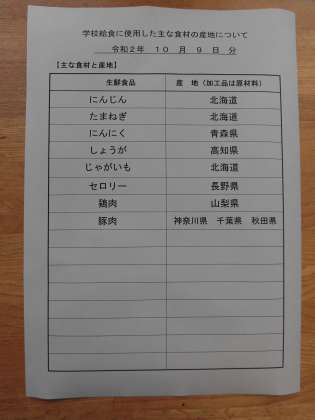 学校給食に使用した主な食材の産地について
令和2年 10 月 9 日 分
【主な食材と産地】
生鮮食品 産 地（加工品は原材料）
にんじん 北海道
たまねぎ 北海道
にんにく 青森県
しょうが 高知県
じゃがいも 北海道
セロリー 長野県
鶏肉 山梨県
豚肉 神奈川県 千葉県 秋田県